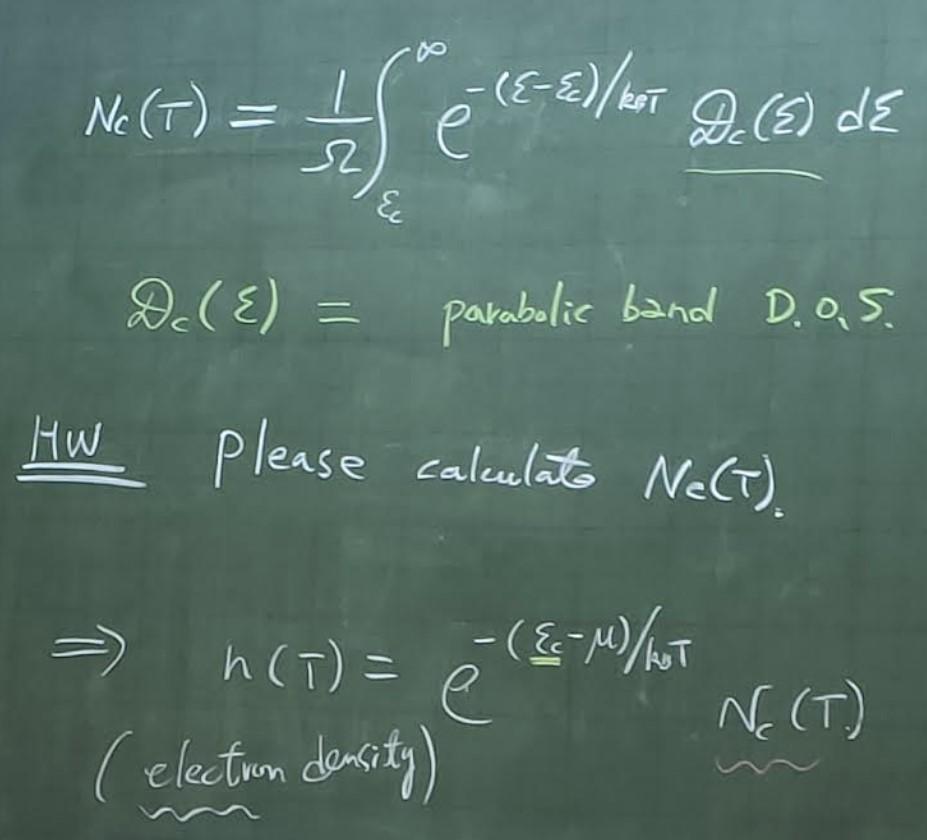 Nc(T) = 1/Ω ∫_{εc}^{∞} e^{-(ε-εc)/kBT} 𝒟c(ε) dε
𝒟c(ε) = parabolic band D.O.S.
HW Please calculate Nc(T).
⇒ n(T) = e^{-(εc-μ)/kBT} Nc(T)
(electron density)